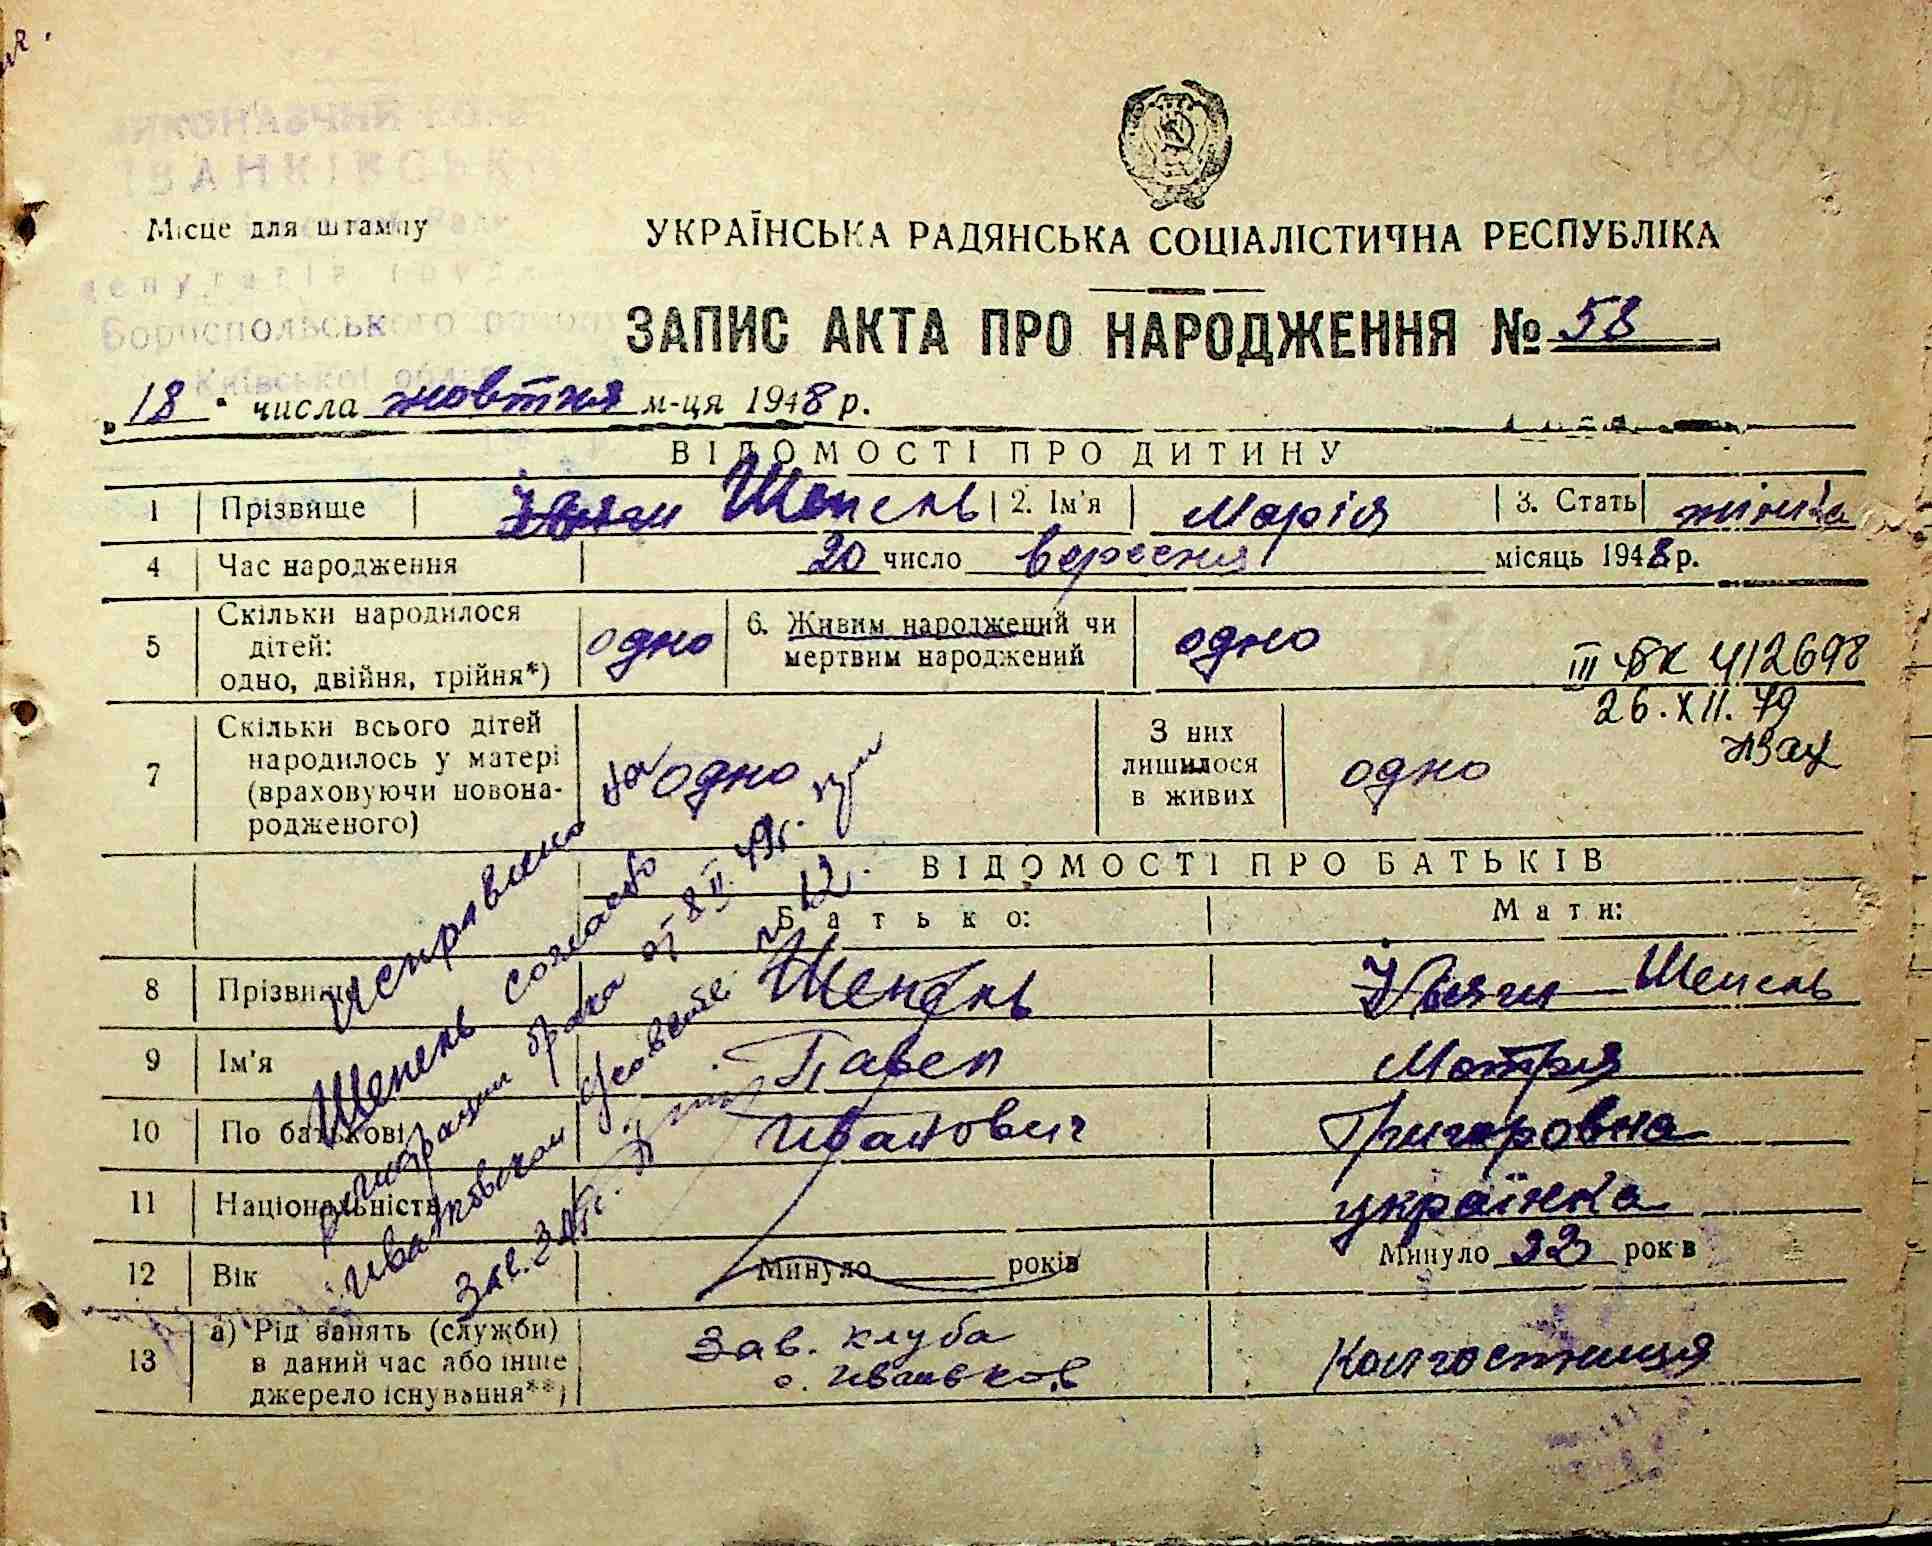 ВИКОНАВЧИЙ
ІВАНКІВСЬК
Місце для штампу
УКРАЇНСЬКА РАДЯНСЬКА СОЦІАЛІСТИЧНА РЕСПУБЛІКА
депутатів
Бориспольського району
Київської
ЗАПИС АКТА ПРО НАРОДЖЕННЯ № 58
„18" числа жовтня м-ця 1948 р.
ВІДОМОСТІ ПРО ДИТИНУ
1 Прізвище Шепель 2. Ім'я Марія 3. Стать жінка
4 Час народження 20 число вересня місяць 1948 р.
5 Скільки народилося дітей: одно, двійня, трійня*) одно 6. Живим народжений чи мертвим народжений одно
III БК 412698
26.XII.79
7 Скільки всього дітей народилось у матері (враховуючи новонародженого) одно З них лишилося в живих одно
ВІДОМОСТІ ПРО БАТЬКІВ
Батько: Мати:
8 Прізвище Шепель Шепель
9 Ім'я Павел Мотря
10 По батькові Иванович Григоровна
11 Національність українка
12 Вік Минуло років Минуло 23 років
13 а) Рід занять (служби) в даний час або інше джерело існування**) Зав. клуба с. Иваньков Колгоспниця
Исправлено на
Шепель согласно
регистрации брака от 8 II. 49 г.
Иваньковском сельсовете № 12.
Зав. ЗАГС.